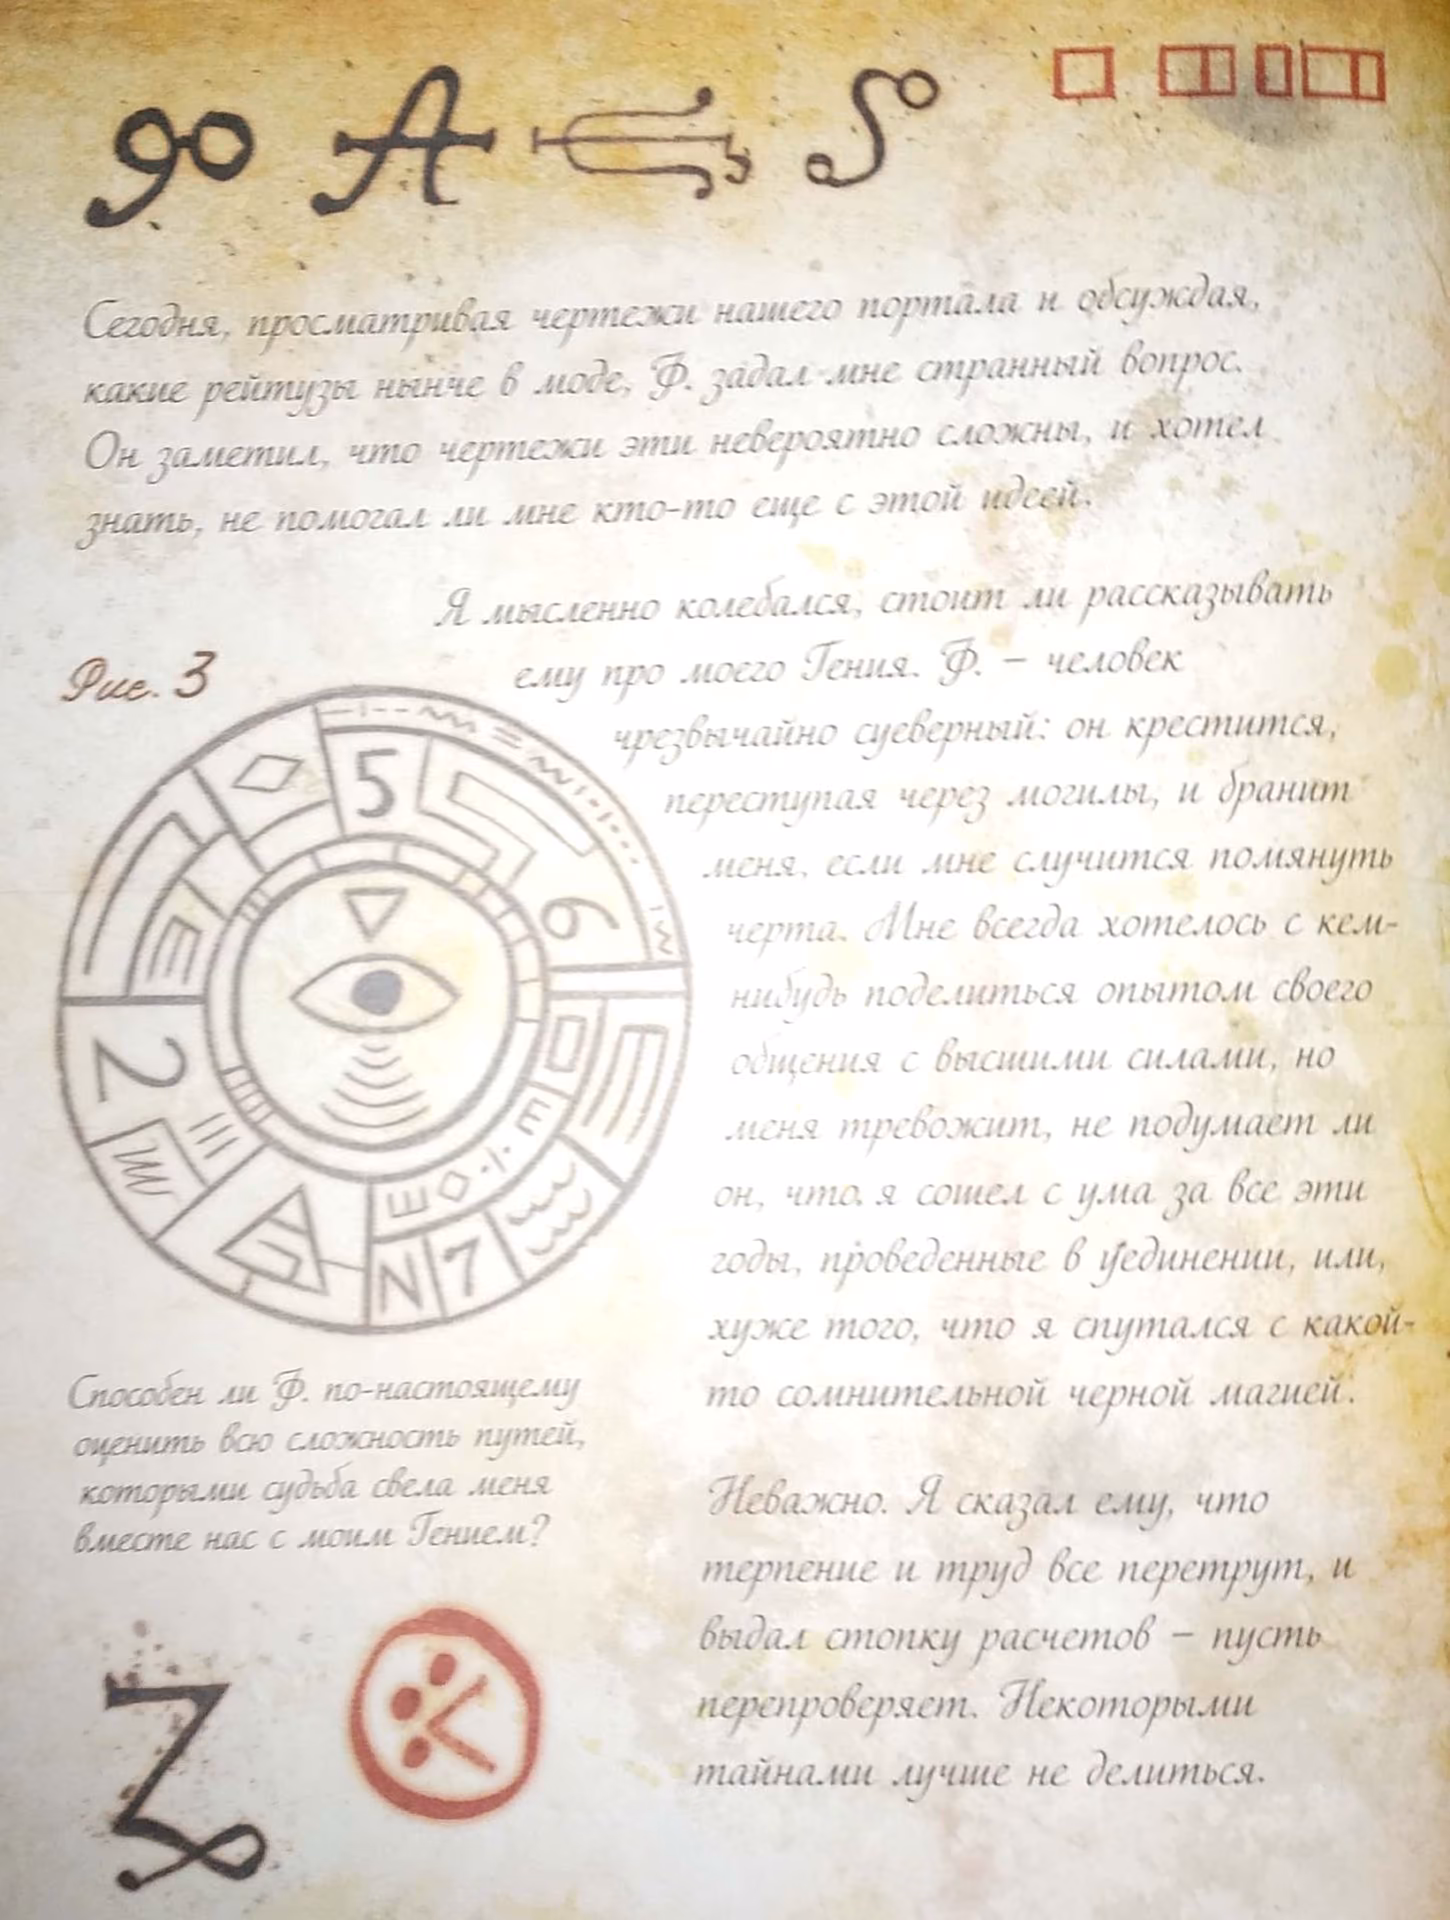 Сегодня, просматривая чертежи нашего портала и обсуждая,
какие рейтузы нынче в моде, Ф. задал мне странный вопрос.
Он заметил, что чертежи эти невероятно сложны, и хотел
знать, не помогал ли мне кто-то еще с этой идеей.
Я мысленно колебался, стоит ли рассказывать
ему про моего Гения. Ф. – человек
чрезвычайно суеверный: он крестится,
переступая через могилы, и бранит
меня, если мне случится помянуть
черта. Мне всегда хотелось с кем-
нибудь поделиться опытом своего
общения с высшими силами, но
меня тревожит, не подумает ли
он, что я сошел с ума за все эти
годы, проведенные в уединении, или,
хуже того, что я спутался с какой-
то сомнительной черной магией.
Неважно. Я сказал ему, что
терпение и труд все перетрут, и
выдал стопку расчетов – пусть
перепроверяет. Некоторыми
тайнами лучше не делиться.
Рис. 3
5
6
2
N 7
Способен ли Ф. по-настоящему
оценить всю сложность путей,
которыми судьба свела меня
вместе нас с моим Гением?